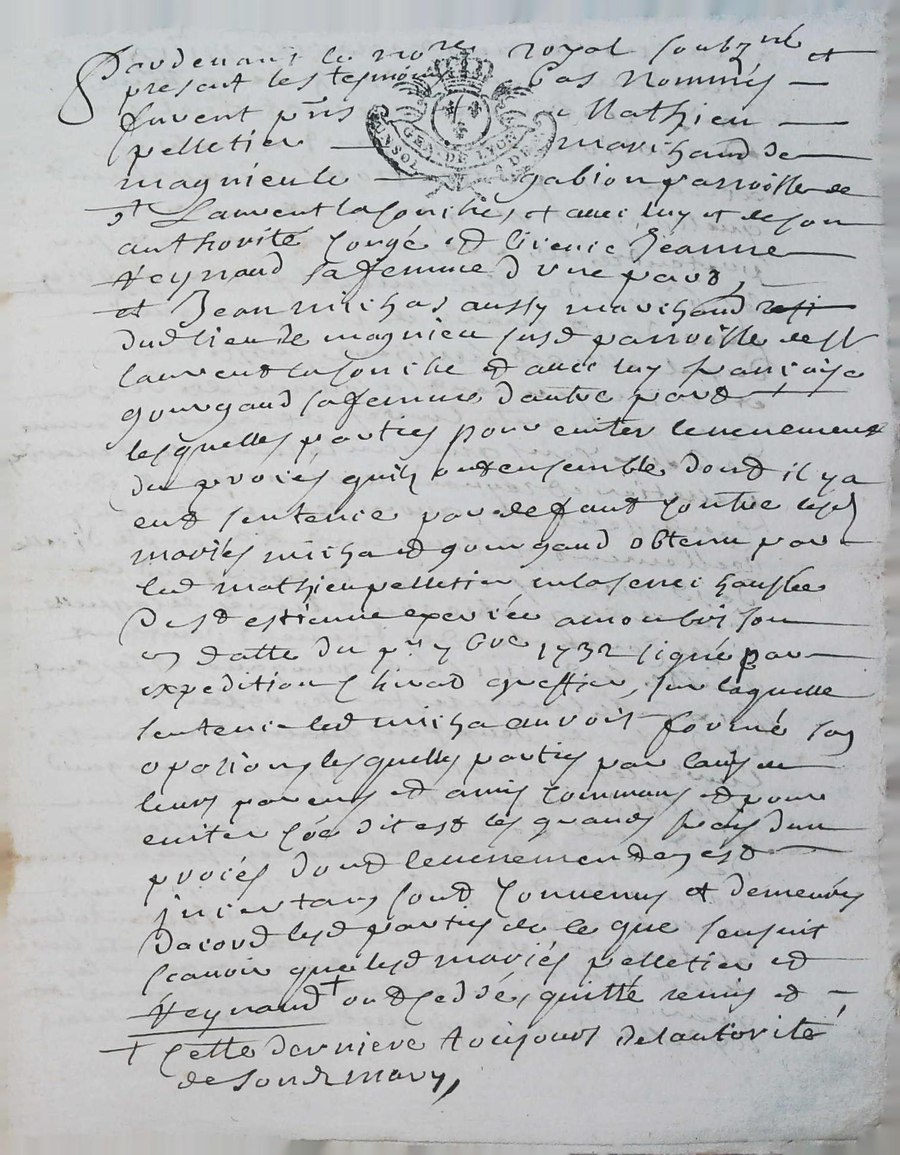 Pardevant le no.re royal soubz.né et
present les tesmoins bas nommés
furent p.nts Mathieu
pelletier marchand de
magnieu le gabion parroisse de
st Laurent la Conche, et avec luy et de son
authorité congé et licence Jeanne
Heynaud sa femme d'une part,
et Jean michas aussy marchand
dud lieu de magnieu susd parroisse de st
laurent la Conche et avec luy francoise
gourgaud sa femme d'autre part
lesquelles parties pour eviter levenement
du procés quils ont ensemble dont il y a
eut sentence par deffaut contre lesd
mariés micha et gourgaud obtenu par
led mathieu pelletier en la senechaussée
de st estienne exercée a monbrison
en datte du p.er 7bre 1732 signé par
expedition greffier, sur laquelle
sentence led micha auroit formé son
oposition lesquelles parties par lavis de
leurs parens et amis communs et pour
eviter coe dit est les grands frais d'un
procés dont levenement est
jncertain sont convenus et demeurés
dacord lesd parties de ce que sensuit
scavoir que lesd mariés pelletier et
Heynaud + ont ceddé, quitté remis et
+ cette derniere toujours de lautorité
de sond mary,
GEN. DE LYON